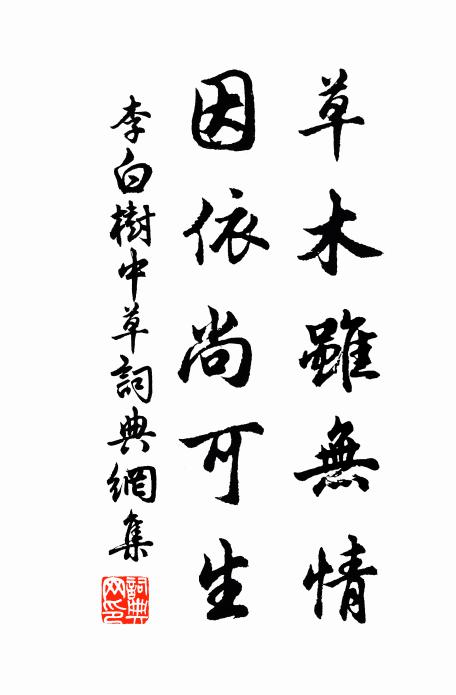 草木雖無情
因依尚可生
李白樹中草詞典網集
詞典
网印